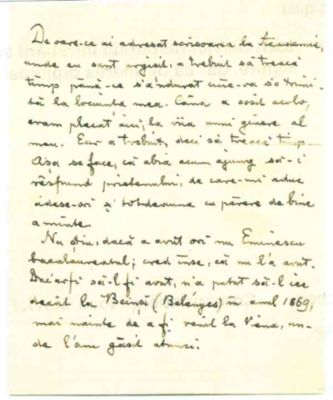 De oare-ce ai adresat scrisoarea la Academie,
unde eu sunt arghist, a trebuit să treacă
timp până-ce s'a îndurat cine-va s'o trimi-
tă la locuința mea. Când a sosit acolo,
eram plecat aici, la viia unui ginere al
meu. Iar a trebuit, deci să treacă timp.
Așa se face, că abia acum ajung să-i
răspund prietenului, de care-mi aduc
adese-ori și totdeauna cu părere de bine
aminte.
Nu știu, dacă a avut ori nu Eminescu
bacalaureatul; cred însă, că nu l'a avut.
Dac'ar fi să-l fi avut, n'a putut să-l iee
decât la Beinș (Belényes) în anul 1869,
mai nainte de a fi venit la Viena, un-
de l'am găsit atunci.